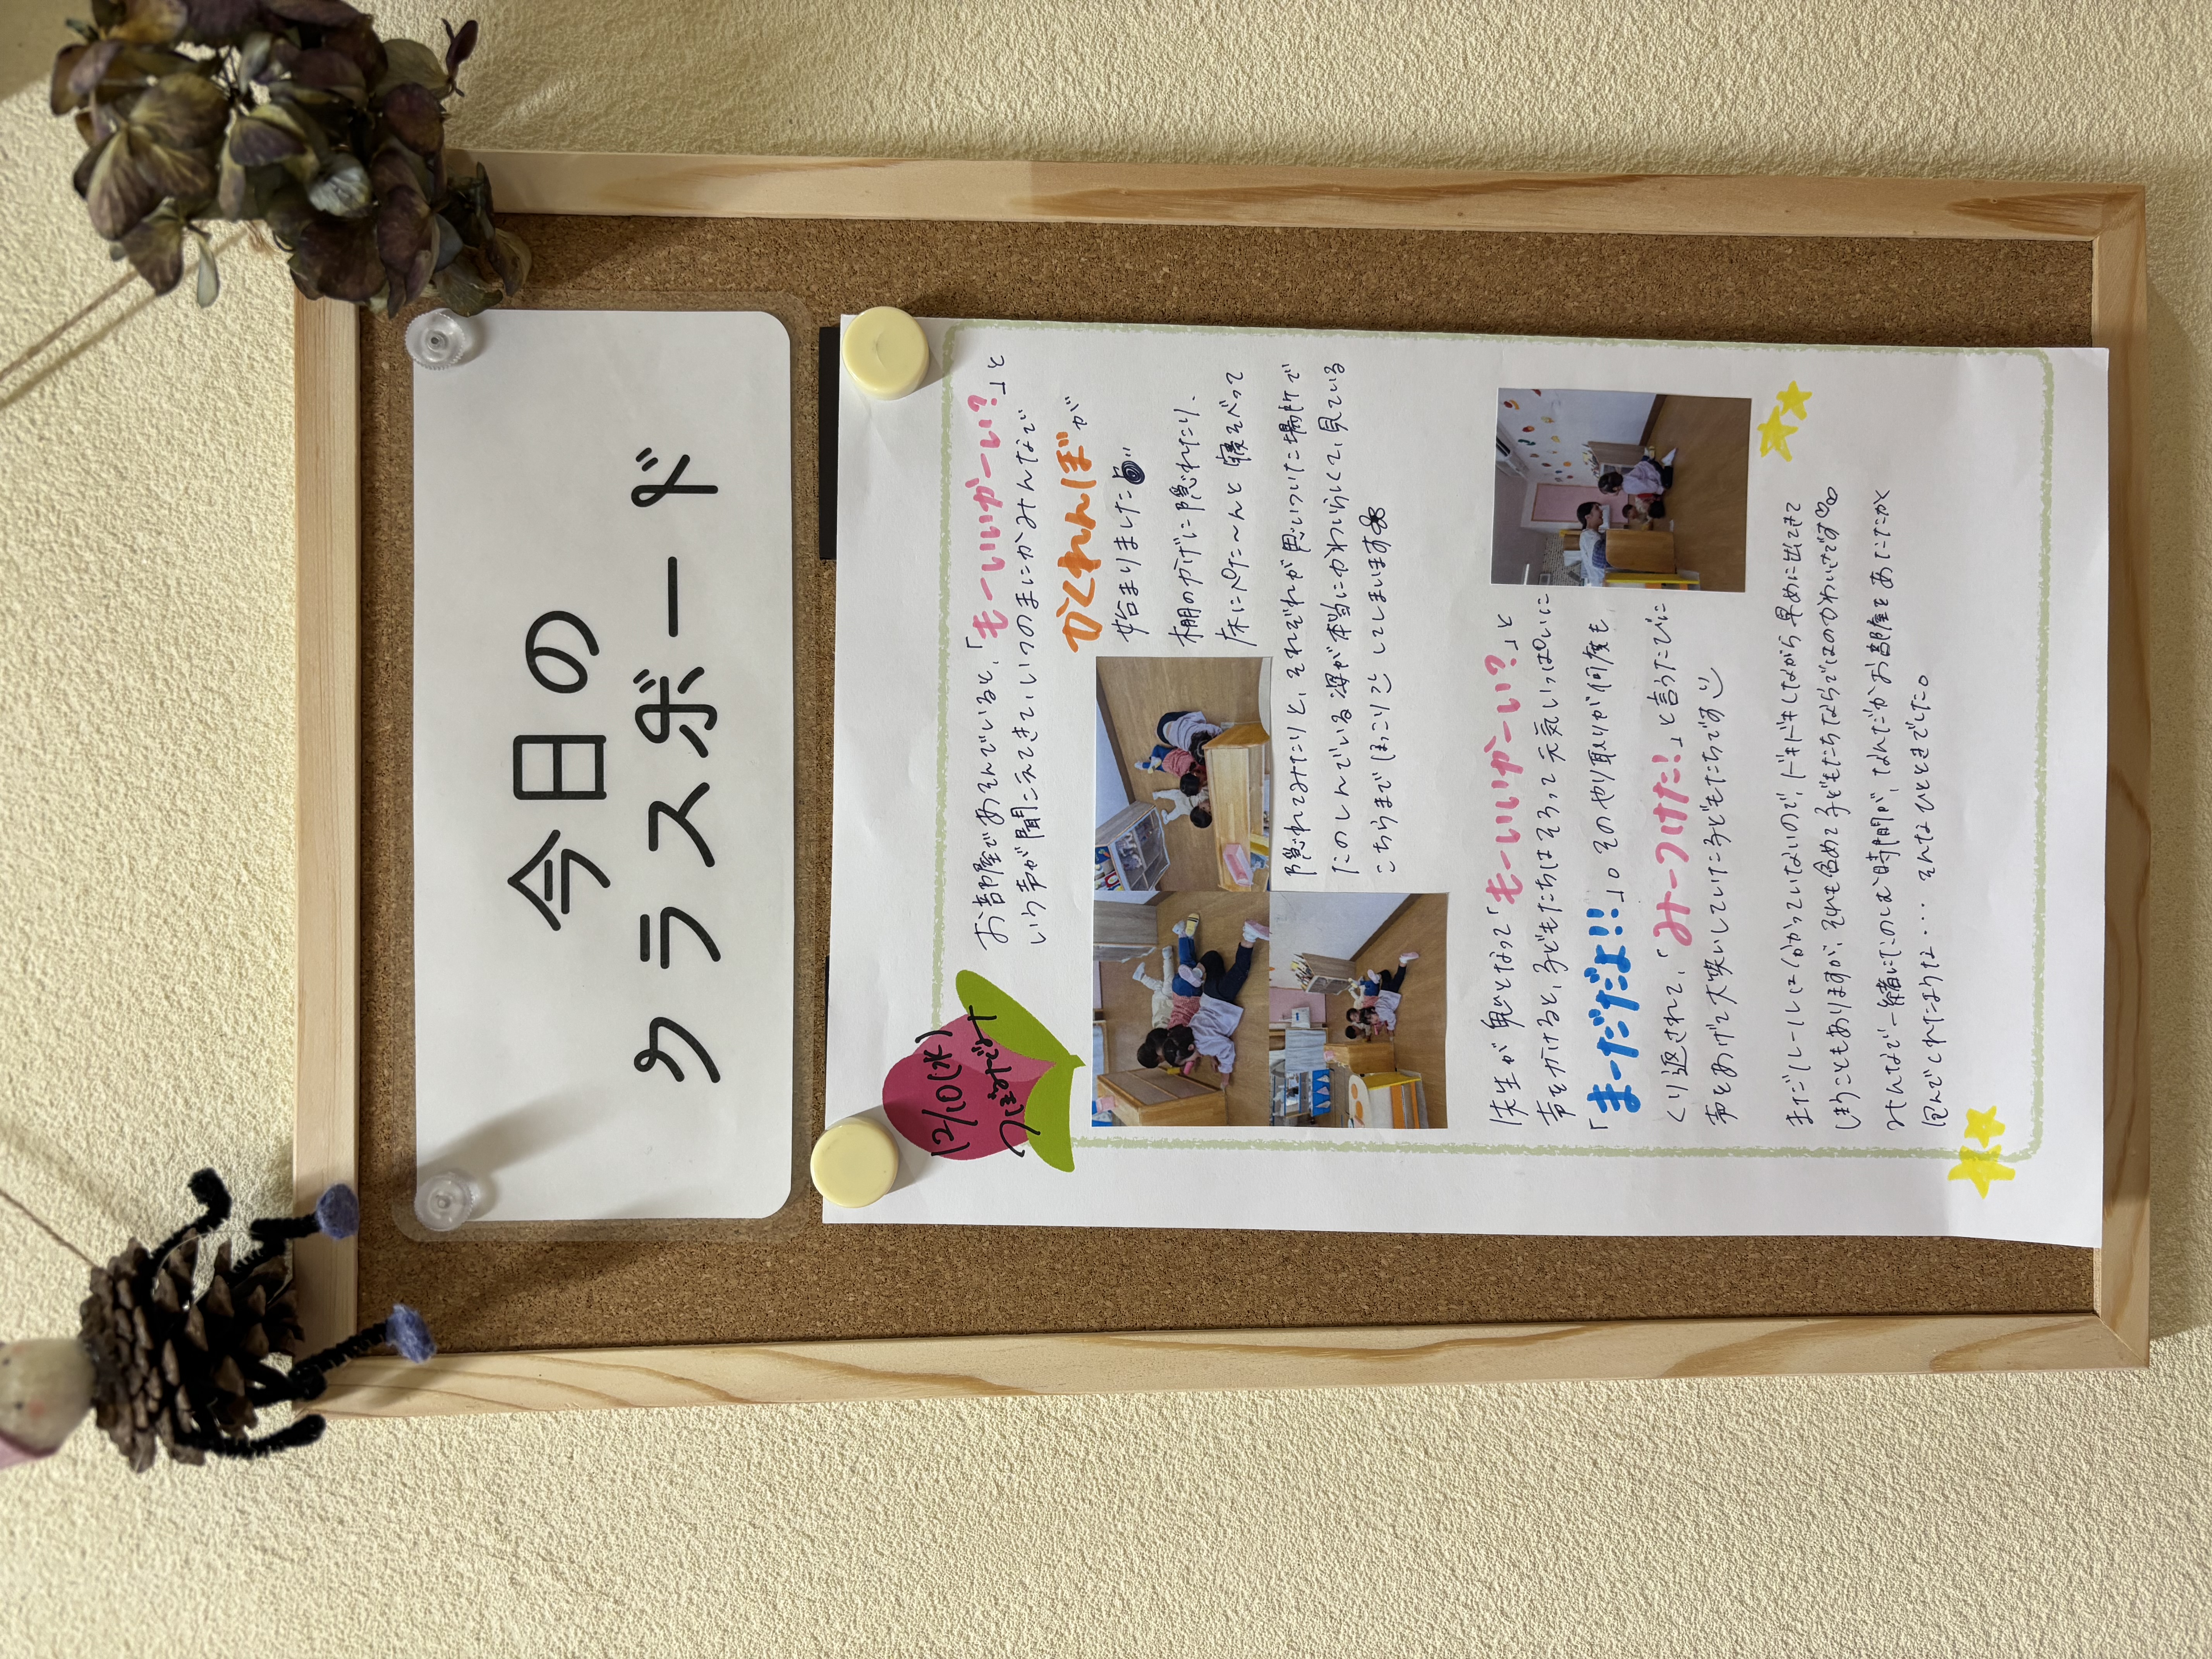 今日の
クラスボード
12/10(水)
つぼみぐみ
お部屋であそんでいると、「もーいいかーい？」と
いう声が聞こえてきて、いつのまにかみんなで
かくれんぼが
始まりました
棚のかげに隠れたり、
床にぺた〜んと寝そべって
隠れてみたりと、それぞれが思いついた場所で
たのしんでいる姿が本当にかわいらしくて、見ている
こちらまでほっこりしてしまいます
先生が鬼となって「もーいいかーい？」と
声をかけると、子どもたちはそろって元気いっぱいに
「まーだだよ!!」。そのやり取りが何度も
くり返されて、「みーつけた！」と言うたびに
声をあげて大笑いしていた子どもたちです
まだルールは分かっていないので、ドキドキしながら早めに出てきて
しまうこともありますが、それも含めて子どもたちならではのかわいさです♡
みんなで一緒にたのしむ時間が、なんだかお部屋をあたたかく
包んでくれたような・・・そんなひとときでした。